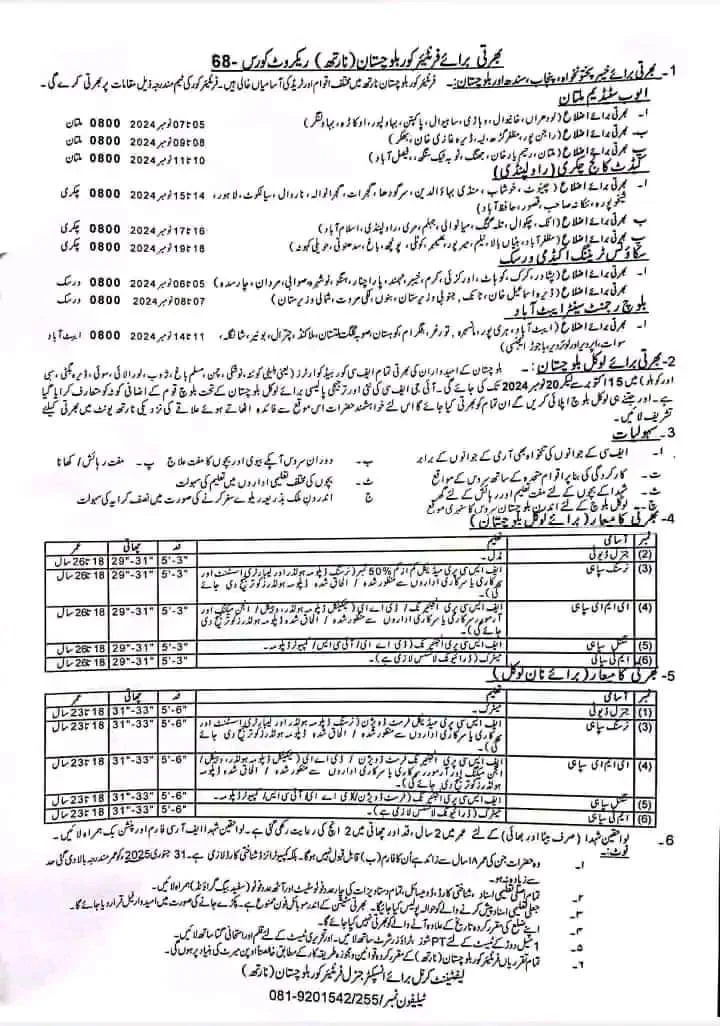 بھرتی برائے فرنٹیئر کور بلوچستان (نارتھ) ریکروٹ کورس -68
1- بھرتی برائے خیبر پختونخواہ، پنجاب، سندھ اور بلوچستان:۔ فرنٹیئر کور بلوچستان نارتھ میں مختلف اقوام اور ٹریڈ کی آسامیاں خالی ہیں۔ فرنٹیئر کور کی ٹیم مندرجہ ذیل مقامات پر بھرتی کرے گی۔
ایوب سٹیڈیم ملتان
ا۔ بھرتی برائے اضلاع (لودھراں، خانیوال، وہاڑی، ساہیوال، پاکپتن، بہاولپور، اوکاڑہ، بہاولنگر) 05 تا 07 نومبر 2024 0800 ملتان
ب۔ بھرتی برائے اضلاع (راجن پور، مظفر گڑھ، لیہ، ڈیرہ غازی خان، بھکر) 08 تا 09 نومبر 2024 0800 ملتان
پ۔ بھرتی برائے اضلاع (ملتان، رحیم یار خان، جھنگ، ٹوبہ ٹیک سنگھ، فیصل آباد) 10 تا 11 نومبر 2024 0800 ملتان
کیڈٹ کالج چکری (راولپنڈی)
ا۔ بھرتی برائے اضلاع (چنیوٹ، خوشاب، منڈی بہاؤالدین، سرگودھا، گجرات، گجرانوالہ، نارووال، سیالکوٹ، لاہور، 14 تا 15 نومبر 2024 0800 چکری
شیخوپورہ، ننکانہ صاحب، قصور، حافظ آباد)
ب۔ بھرتی برائے اضلاع (اٹک، چکوال، تلہ گنگ، میانوالی، جہلم، مری، راولپنڈی، اسلام آباد) 16 تا 17 نومبر 2024 0800 چکری
پ۔ بھرتی برائے اضلاع (مظفر آباد، ہٹیاں بالا، نیلم، میرپور، بھمبر، کوٹلی، پونچھ، باغ، سدھنوتی، حویلی کہوٹہ) 18 تا 19 نومبر 2024 0800 چکری
سکاؤٹس ٹریننگ اکیڈمی ورسک
ا۔ بھرتی برائے اضلاع (پشاور، کرک، کوہاٹ، اورکزئی، کرم، خیبر، مہمند، پاراچنار، ہنگو، نوشہرہ، صوابی، مردان، چارسدہ) 05 تا 06 نومبر 2024 0800 ورسک
ب۔ بھرتی برائے اضلاع (ڈیرہ اسماعیل خان، ٹانک، جنوبی وزیرستان، بنوں، لکی مروت، شمالی وزیرستان) 07 تا 08 نومبر 2024 ورسک
بلوچ رجمنٹ سینٹر ایبٹ آباد
ا۔ بھرتی برائے اضلاع (ایبٹ آباد، ہری پور، مانسہرہ، تورغر، بٹگرام، کوہستان، صوبہ گلگت بلتستان، ملاکنڈ، چترال، بونیر، شانگلہ، 11 تا 14 نومبر 2024 0800 ایبٹ آباد
سوات، اپر دیر اور لوئر دیر، باجوڑ ایجنسی)
2- بھرتی برائے لوکل بلوچستان:۔ بلوچستان کے امیدواران کی بھرتی تمام ایف سی کور ہیڈ کوارٹرز (یعنی کوئٹہ، نوشکی، چمن، مسلم باغ، ژوب، لورالائی، سوئی، ڈیرہ بگٹی، سبی
اور کوہلو) میں 15 اکتوبر سے لیکر 20 نومبر 2024 تک کی جائے گی۔ آئی جی ایف سی کی نئی اور ترجیحی پالیسی برائے لوکل بلوچستان کے تحت بلوچ قوم کے اضافی کوٹہ کو متعارف کرایا گیا
ہے۔ اور جتنے بھی لوکل بلوچ اپلائی کریں گے ان تمام کو بھرتی کیا جائے گا اس لئے خواہشمند حضرات اس موقع سے فائدہ اٹھاتے ہوئے علاقے کی نزدیکی نارتھ یونٹ میں بھرتی کیلئے
تشریف لائیں۔
3- سہولیات
ا۔ ایف سی کے جوانوں کی تنخواہ بھی آرمی کے جوانوں کے برابر ب۔ دوران سروس آپکے بیوی اور بچوں کا مفت علاج پ۔ مفت رہائش / کھانا
ت۔ کارکردگی کی بنا پر اقوام متحدہ کے ساتھ سروس کے مواقع ٹ۔ بچوں کی مختلف تعلیمی اداروں میں تعلیم کی سہولت
ث۔ شہدا کے بچوں کے لئے مفت تعلیم اور رہائش کے لئے گھر ج اندرون ملک بذریعہ ریلوے سفر کرنے کی صورت میں نصف کرایہ کی سہولت
چ۔ لوکل بلوچ کے لئے اندرون بلوچستان سروس کا سنہری موقع
4- بھرتی کا معیار (برائے لوکل بلوچستان)
نمبر آسامی تعلیم قد چھاتی عمر
(2) جنرل ڈیوٹی مڈل۔ 5'-3" 29"-31" 18 تا 26 سال
(3) نرسنگ سپاہی ایف ایس سی پری میڈیکل کم از کم 50% نمبر (نرسنگ ڈپلومہ ہولڈرز اور لیبارٹری اسسٹنٹ اور 5'-3" 29"-31" 18 تا 26 سال
سرکاری یا سرکاری اداروں سے منظور شدہ / الحاق شدہ ڈپلومہ ہولڈرز کو ترجیح دی جائے
گی)۔
(4) ای ایم ای سپاہی ایف ایس سی پری انجینئرنگ / ڈی اے ای (ٹیکنیکل ڈپلومہ ہولڈرز، وہیکل / انجن مکینک اور 5'-3" 29"-31" 18 تا 26 سال
آرمورر سرکاری یا سرکاری اداروں سے منظور شدہ / الحاق شدہ ڈپلومہ ہولڈرز کو ترجیح دی
جائے گی)
(5) سگنل سپاہی ایف ایس سی پری انجینئرنگ (ڈی اے ای / آئی سی ایس / کمپیوٹر ڈپلومہ۔ 5'-3" 29"-31" 18 تا 26 سال
(6) ایم ٹی سپاہی میٹرک (ڈرائیونگ لائسنس لازمی ہے)۔ 5'-3" 29"-31" 18 تا 26 سال
5- بھرتی کا معیار (برائے نان لوکل)
نمبر آسامی تعلیم قد چھاتی عمر
(1) جنرل ڈیوٹی میٹرک۔ 5'-6" 31"-33" 18 تا 23 سال
(3) نرسنگ سپاہی ایف ایس سی پری میڈیکل فرسٹ ڈویژن (نرسنگ ڈپلومہ ہولڈرز اور لیبارٹری اسسٹنٹ اور 5'-6" 31"-33" 18 تا 23 سال
سرکاری یا سرکاری اداروں سے منظور شدہ / الحاق شدہ ڈپلومہ ہولڈرز کو ترجیح دی جائے
گی)۔
(4) ای ایم ای سپاہی ایف ایس سی پری انجینئرنگ فرسٹ ڈویژن / ڈی اے ای (ٹیکنیکل ڈپلومہ ہولڈرز، وہیکل / 5'-6" 31"-33" 18 تا 23 سال
انجن مکینک اور آرمورر سرکاری یا سرکاری اداروں سے منظور شدہ / الحاق شدہ ڈپلومہ ہولڈرز کو ترجیح دی
جائے گی)۔
(5) سگنل سپاہی ایف ایس سی پری انجینئرنگ (فرسٹ ڈویژن) / ڈی اے ای / آئی سی ایس / کمپیوٹر ڈپلومہ۔ 5'-6" 31"-33" 18 تا 23 سال
(6) میٹرک (ڈرائیونگ لائسنس لازمی ہے)۔ 5'-6" 31"-33" 18 تا 23 سال
6- لواحقین شہدا (صرف بیٹا اور بھائی) کے لئے عمر میں 2 سال، قد اور چھاتی میں 2 انچ کی رعایت رکھی گئی ہے۔ لواحقین شہدا ایف آر سی فارم اور پنشن بک ہمراہ لائیں۔
نوٹ:۔
۱۔ وہ حضرات جن کی عمر ۱۸ سال سے زائد ہے اُن کا فارم (ب) قابل قبول نہیں ہوگا۔ بلکہ کمپیوٹرائزڈ شناختی کارڈ لازمی ہے۔ 31 جنوری 2025 کو عمر مندرجہ بالا دی گئی حد
سے زیادہ نہ ہو۔
۲۔ تمام اصلی تعلیمی اسناد، شناختی کارڈ، ڈومیسائل، تمام دستاویزات کی چار عدد فوٹو سٹیٹ اور آٹھ عدد فوٹو (سفید بیک گراؤنڈ) ہمراہ لائیں۔
۳۔ جعلی تعلیمی اسناد پیش کرنے والے کو حوالہ پولیس کیا جائیگا۔ بھرتی سٹیشن کے اندر موبائل فون ممنوع ہے۔ پکڑے جانے کی صورت میں امیدوار فیل قرار دیا جائے گا۔
۴۔ اپنے ضلع کی مقرر کردہ تاریخ کے علاوہ آنے والے کو بھرتی نہیں کیا جائیگا۔
۵۔ 1 میل دوڑ کے ٹیسٹ کے لئے PT شوز، ٹراؤزر، شرٹ ساتھ لائیں۔ اور تحریری ٹیسٹ کے لئے قلم اور امتحانی گتا ساتھ لائیں۔
۶۔ تمام تقرریاں فرنٹیئر کور بلوچستان (نارتھ) کے مقرر کردہ قوانین و مجوزہ طریقہ کار کے مطابق خالصتاً اوپن میرٹ کی بنیاد پر ہوں گی۔
لیفٹیننٹ کرنل برائے انسپکٹر جنرل فرنٹیئر کور بلوچستان (نارتھ)
ٹیلیفون نمبر / 081-9201542/255